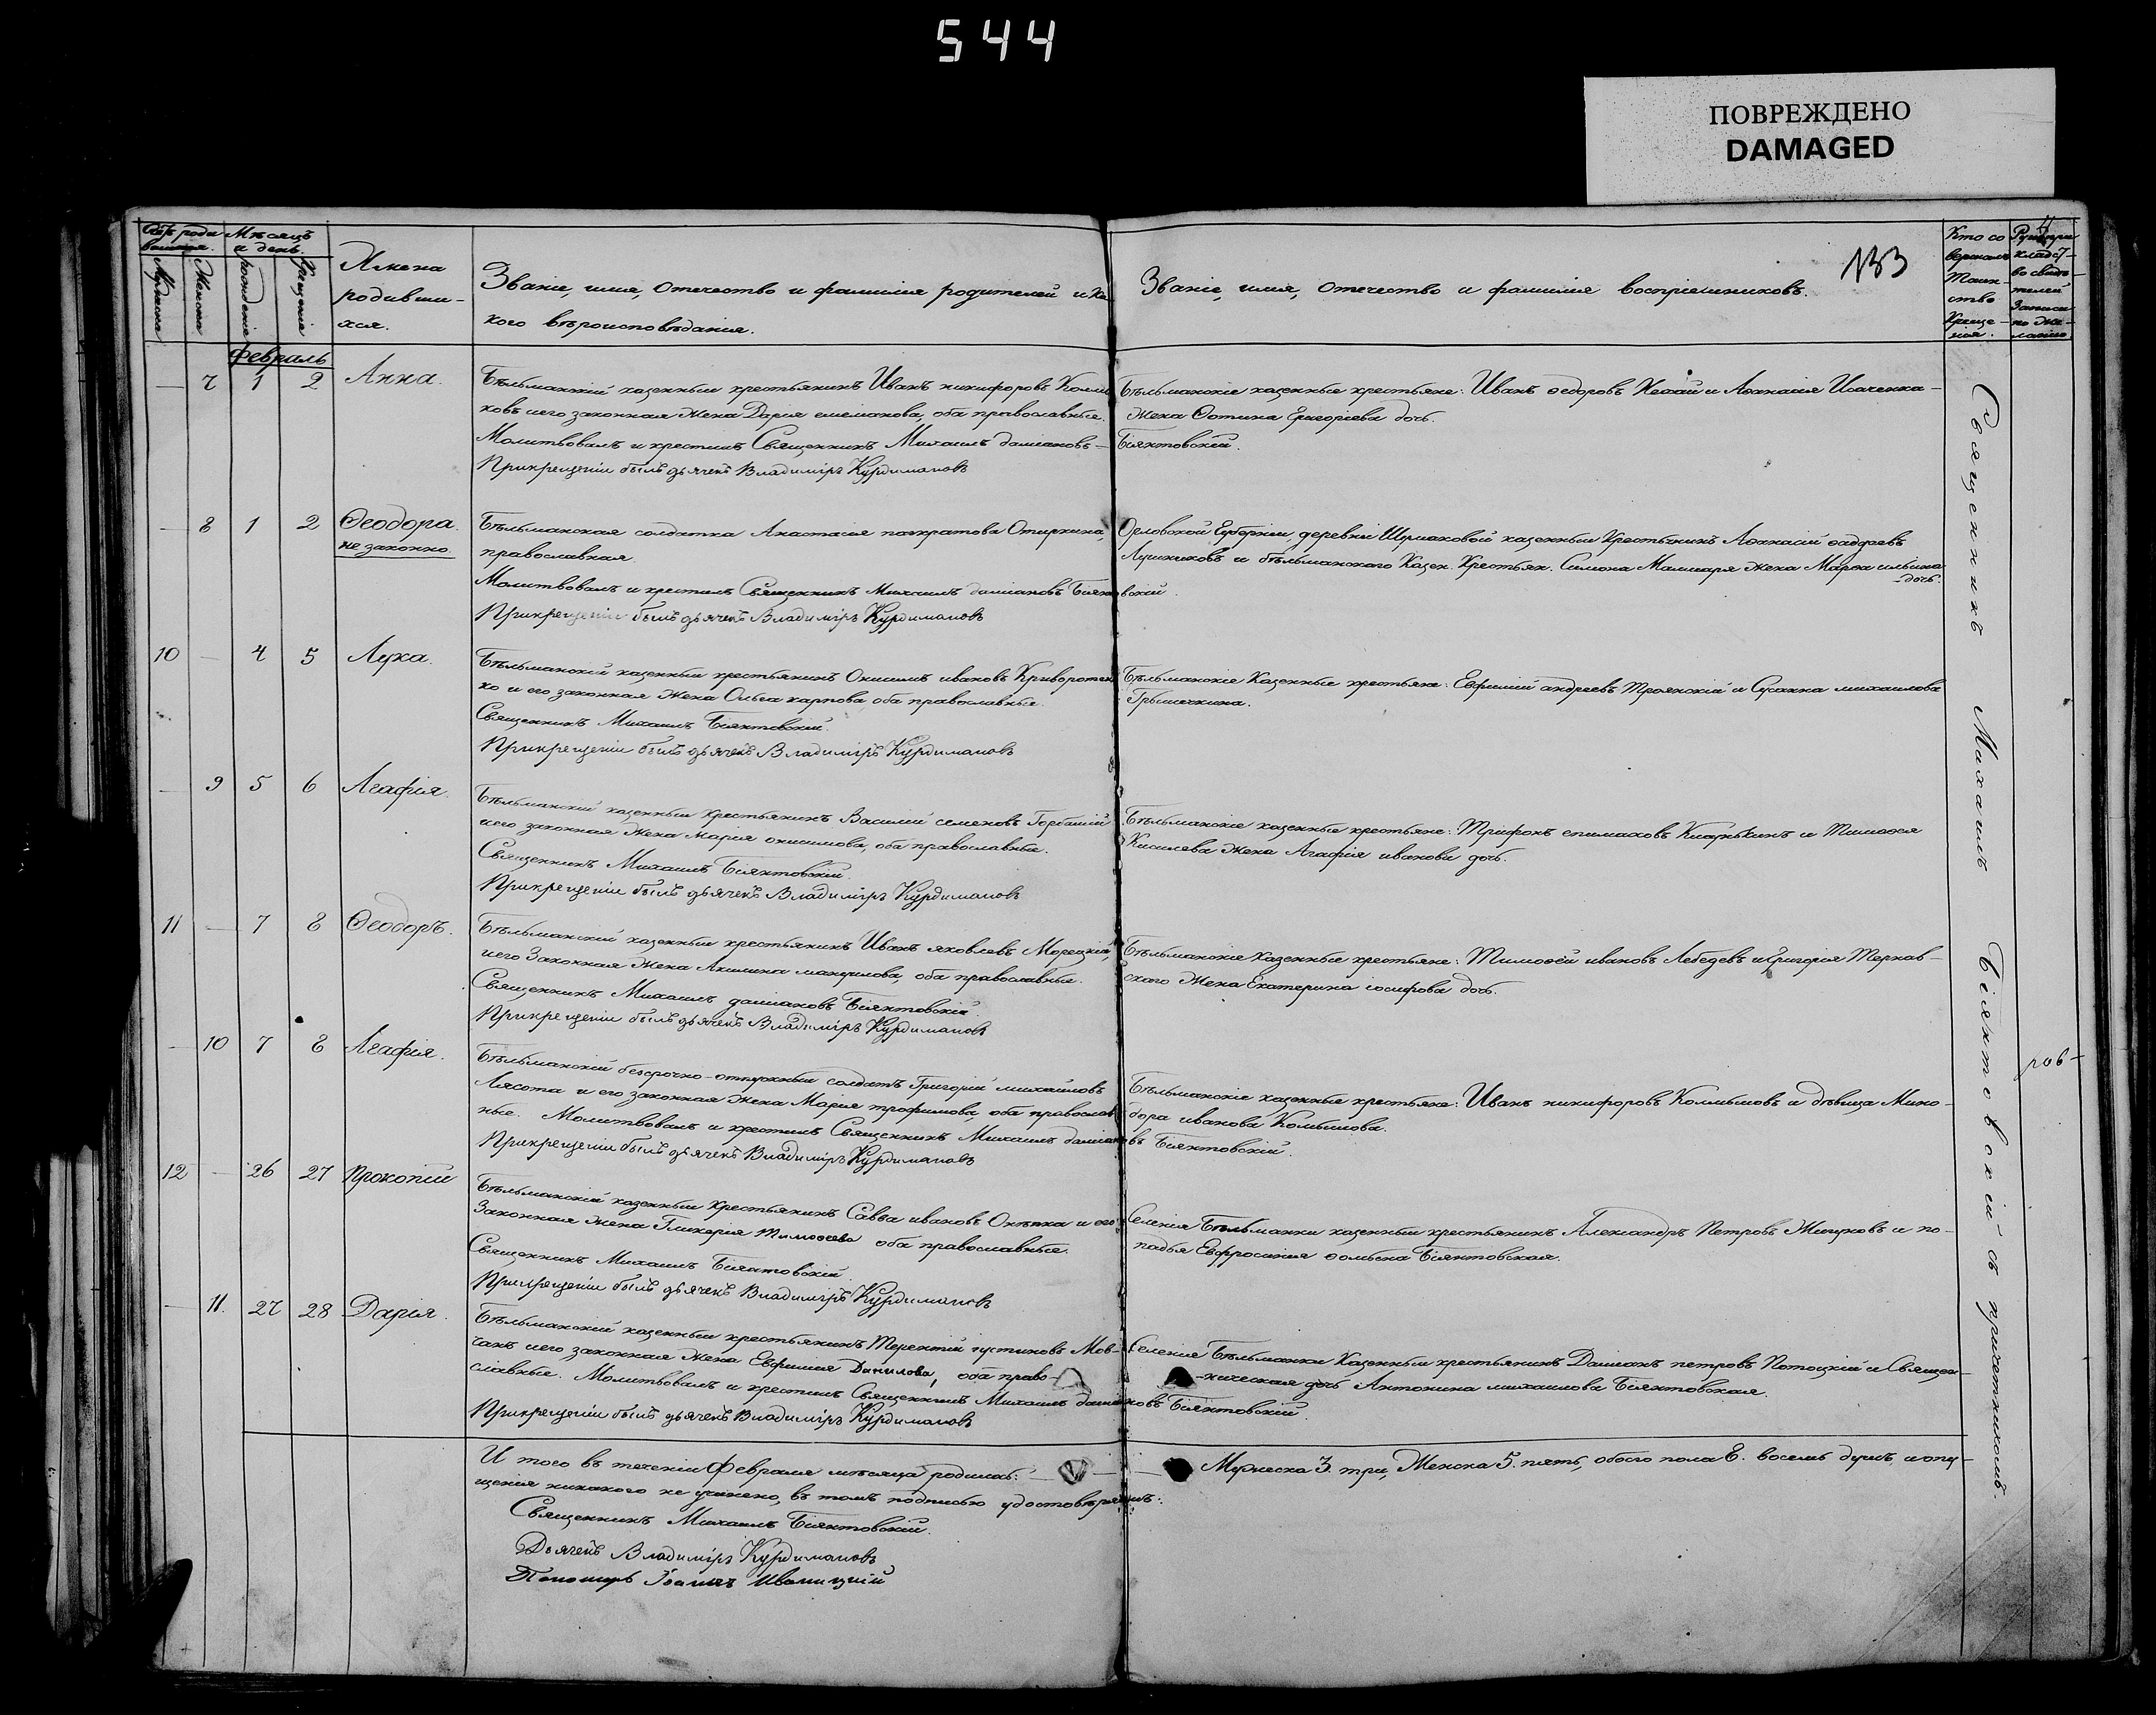 544
ПОВРЕЖДЕНО
DAMAGED
133
Счетъ роди
вшихся.
Мужеска
Женска
Мѣсяцъ
и день.
рожденіе
крещенія
Имена
родивши-
хся.
Званіе, имя, отечество и фамилія родителей и ка-
кого вѣроисповѣданія.
Званіе, имя, отечество и фамилія воспріемниковъ.
Кто со
вершалъ
Таин-
ство
Креще-
нія.
Рукопри
кладст
во свидѣ-
телей
записи
по же-
ланію
Февраль
— 7 1 2 Анна.
Бѣльманскій казенный крестьянинъ Иванъ никифоровъ
ковъ и его законная жена Дарія емеліанова, оба православные.
Молитвовалъ и крестилъ Священникъ Михаилъ даміановъ —
Прикрещеніи былъ дьячекъ Владиміръ Курдимановъ
Бѣльманскіе казенные крестьяне: Иванъ ѳедоровъ Нехай и Аѳанасія Исаченка —
жена Фотина Григоріева дочь.
Біянтовскій.
— 8 1 2 Ѳеодора.
не законно.
Бѣльманская солдатка Анастасія панкратова Отиркина,
православная.
Молитвовалъ и крестилъ Священникъ Михаилъ даміановъ Біянто
Прикрещеніи былъ дьячекъ Владиміръ Курдимановъ
Орловской Губерніи, деревни Шумаковой казенный крестьянинъ Аѳанасій
Лушниковъ и бѣльманскаго Казен. Крестьян. Симона Малшаря жена Марѳа ильина
дочь.
вскій.
10 — 4 5 Лука.
Бѣльманскій казенный крестьянинъ Онисимъ ивановъ Криворотен
ко и его законная жена Ольга карпова, оба православные.
Священникъ Михаилъ Біянтовскій.
Прикрещеніи былъ дьячекъ Владиміръ Курдимановъ
Бѣльманскіе Казенные крестьяне: Евфимій андреевъ Троянскій и Сусанна михаилова
— 9 5 6 Агафія.
Бѣльманскій казенный крестьянинъ Василій семеновъ Горбатій
и его законная жена Марія онисимова, оба православные.
Священникъ Михаилъ Біянтовскій.
Прикрещеніи былъ дьячекъ Владиміръ Курдимановъ
Бѣльманскіе казенные крестьяне: Трифонъ епимаховъ и Тимоѳея
Киселева жена Агафія иванова дочь.
11 — 7 8 Ѳеодоръ.
Бѣльманскій казенный крестьянинъ Иванъ яковлевъ Морецкій,
и его Законная жена Акилина мануилова, оба православные.
Священникъ Михаилъ даміановъ Біянтовскій.
Прикрещеніи былъ дьячекъ Владиміръ Курдимановъ
Бѣльманскіе Казенные крестьяне: Тимоѳей ивановъ Лебедевъ и Григорія Тернав-
скаго жена Екатерина іосифова дочь.
— 10 7 8 Агафія.
Бѣльманскій безсрочно-отпускный солдатъ Григорій михаиловъ
Лясота и его законная жена Марія трофимова, оба православ
ные. Молитвовалъ и крестилъ Священникъ Михаилъ даміано
Прикрещеніи былъ дьячекъ Владиміръ Курдимановъ
Бѣльманскіе казенные крестьяне: Иванъ никифоровъ Колмыковъ и дѣвица Мино-
дора иванова
въ Біянтовскій.
12 — 26 27 Прокопій
Бѣльманскій казенный Крестьянинъ Савва ивановъ и его
Законная жена Гликерія Тимоѳеева оба православные.
Священникъ Михаилъ Біянтовскій.
Прикрещеніи былъ дьячекъ Владиміръ Курдимановъ
Селенія Бѣльманки казенный крестьянинъ Александръ Петровъ и по-
падья Евфросинія Біянтовская.
— 11. 27 28 Дарія.
Бѣльманскій казенный крестьянинъ Терентій іустиновъ Мов-
чанъ и его законная жена Евфимія Данилова, оба право-
славные. Молитвовалъ и крестилъ Священникъ Михаилъ даміа
Прикрещеніи былъ дьячекъ Владиміръ Курдимановъ
Селенія Бѣльманки Казенный крестьянинъ Даміанъ петровъ Потоцкій и Священ-
ническая дочь Антонина михаилова Біянтовская.
новъ Біянтовскій.
И того въ теченіи Февраля мѣсяца родилось: — — Мужеска 3. три, Женска 5. пять, обоего пола 8. восемь душъ, и опу-
щенія никакого не учинено, въ томъ подписью удостовѣряемъ:
Священникъ Михаилъ Біянтовскій.
Дьячекъ Владиміръ Курдимановъ
Пономарь Іоаннъ Иваницкій
Священникъ Михаилъ Біянтовскій съ причетникомъ.
ров-